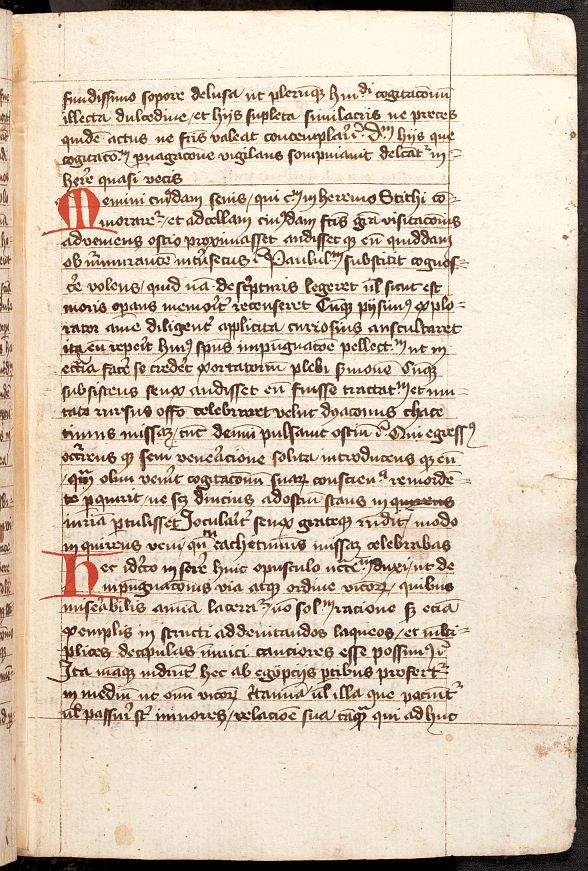 fundissimo sopore delusa ut plerumque huiusmodi cogitacionum
illecta dulcedine / et hiis supleta simulacris ne preces
quidem actus ne fratris valeat contemplari Dum hiis que
cogitacionum peruagacone vigilans sompniauit delectatur in
herere quasi vecis
Memini cuiusdam senis / qui cum in heremo Stithi co
moraretur / et ad cellam cuiusdam fratris gratia visitacionis
adveniens ostio proximasset audisset que eum quiddam
ob murmurante intrinsecus Paululum substitit cognos
cere volens / quid nam de scripturis legeret vel sicut est
moris operans memoriter recenseret Cumque piissimus explo
rator aure diligenter aplicita curiosius auscultaret
ita eum reperit huius spiritus inpugnacione pellectum ut in
ecclesia facere se crederet exortatorium plebi sermonem Cumque
subsistens senex audisset eum finisse tractatum et mu
tato rursus officio celebraret velut dyaconus chate
timinis missam / tunc demum pulsauit ostium Qui egressus
occurrens que seni veneracione solita introducens que eum
/ quam olim venerit cogitacionum suarum consciencia remorden
te perquirit / ne scilicet diucius ad ostium stans in
iniuriam pertulisset Joculariter senex grateque ridit / modo
inquirens veni / quando tu cachetiminis missam celebrabas
Hec idcirco inserere huic opusculo necessarium duxi / ut de
inpugnacionis via atque ordine viciorum / quibus
miserabilis anima laceratur / non solum racione sed eciam
exemplis instructi ad deuitandos laqueos / et multi
plices decipulas inimici cauciores esse possimus
Ita namque indiscrete hec ab egipciis patribus proferuntur
in medium ut omnium viciorum ctamina / vel illa que paciuntur
vel passuri sunt iuniores / relacione sua tamquam qui adhuc